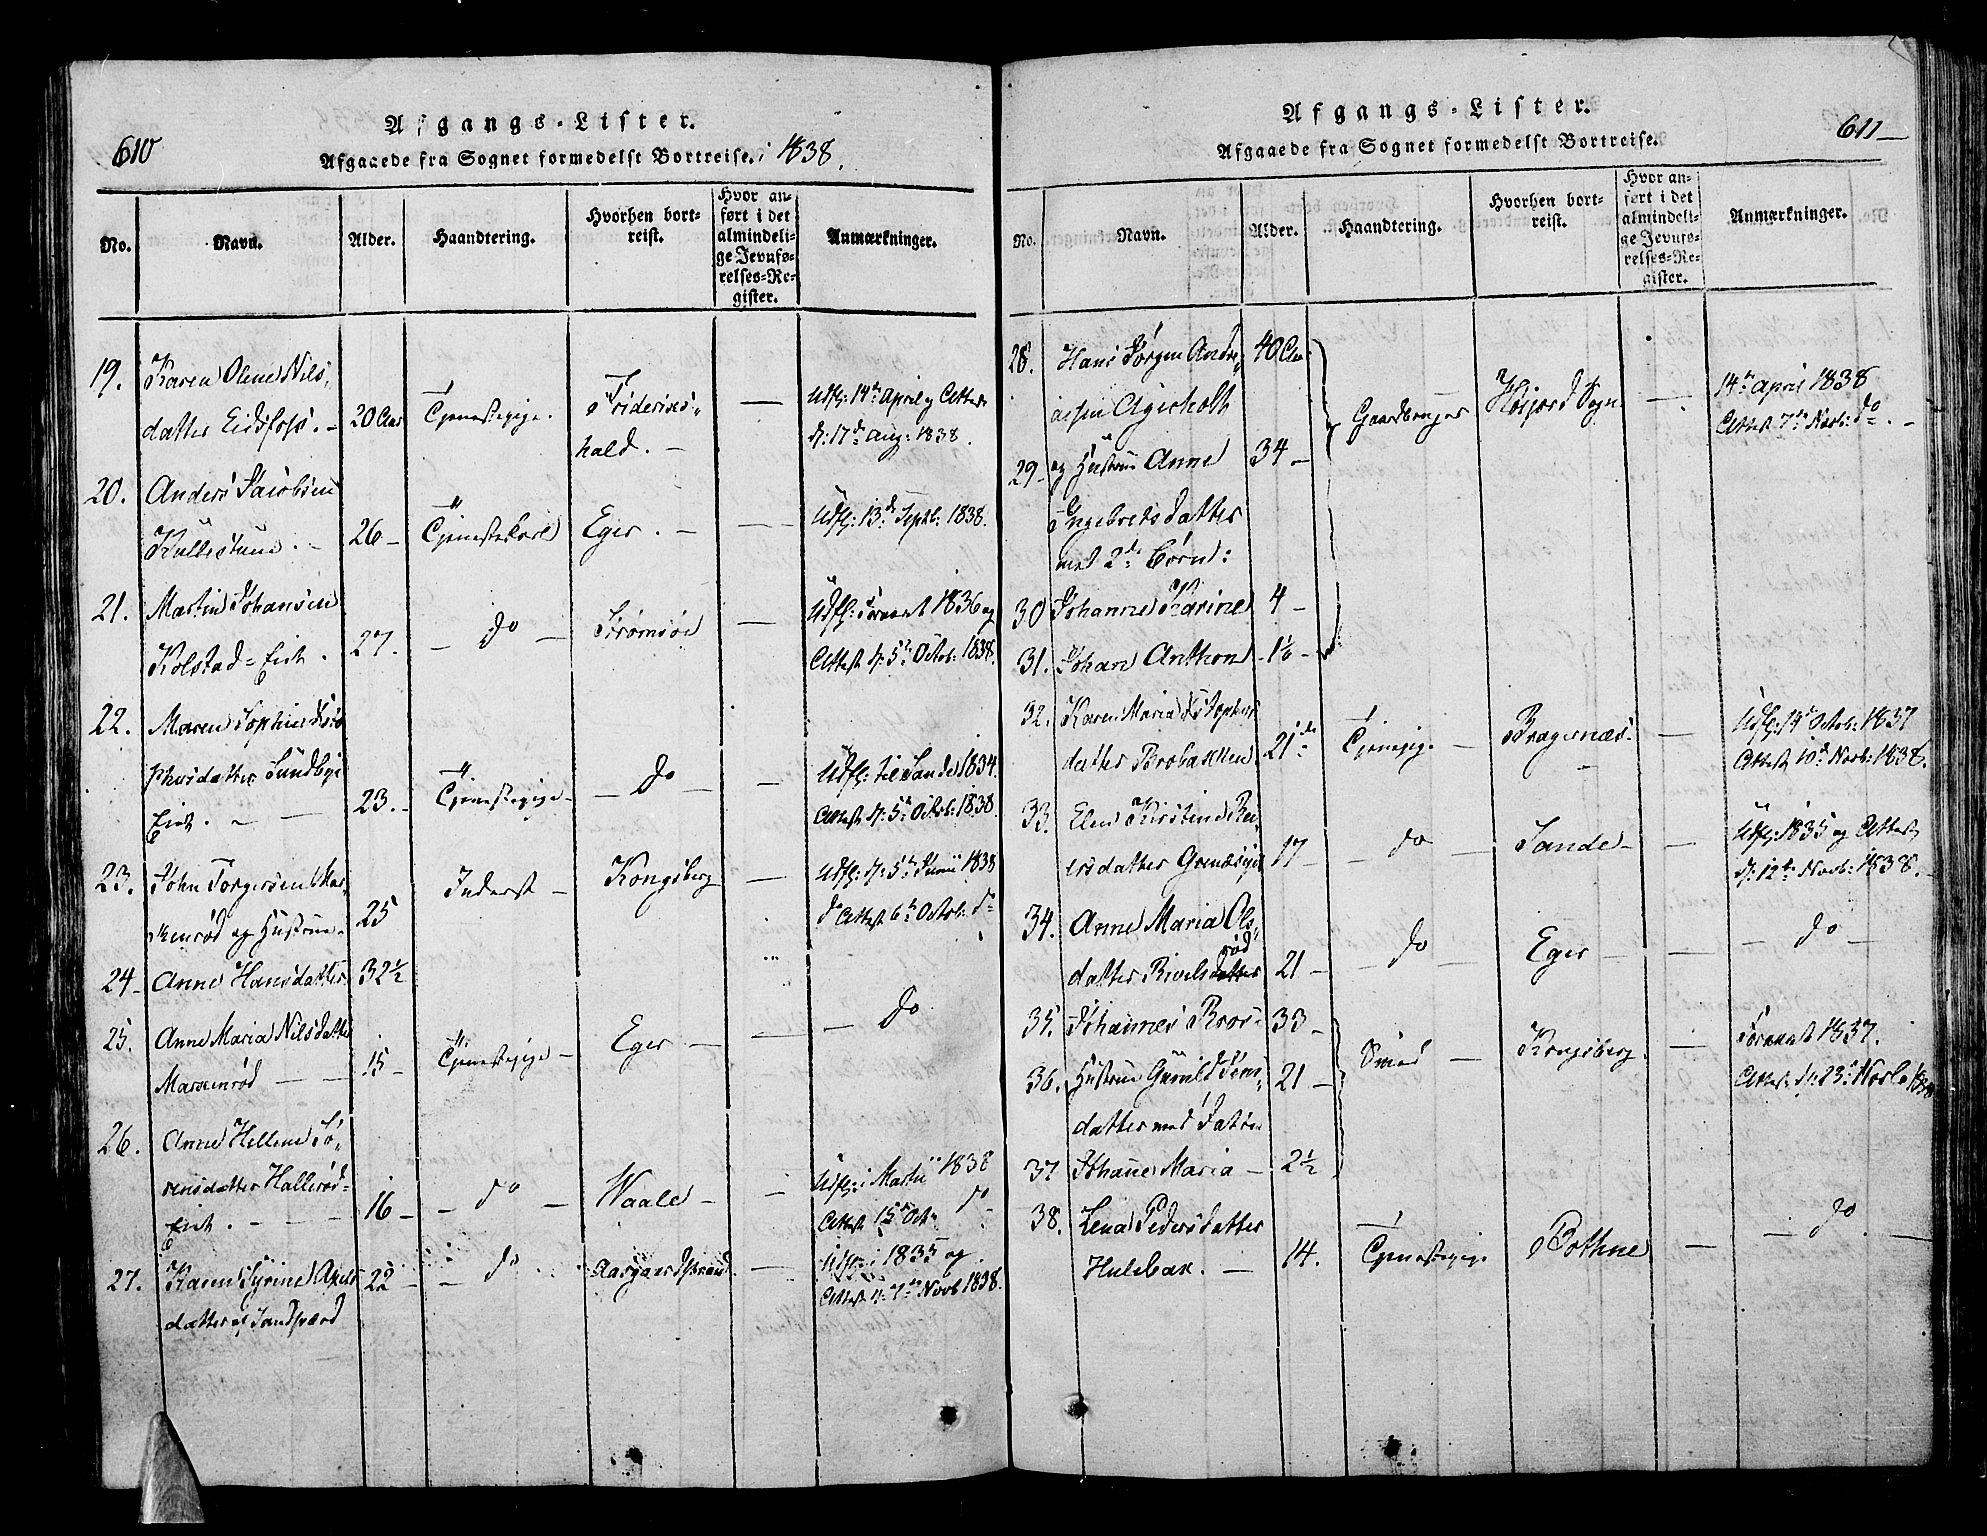 610
Afgangs-Lister.
Afgaaede fra Sognet formedelst Bortreise. i 1838.
No. Navn. Alder. Haandtering. Hvorhen bortreist. Hvor anført i det almindelige Jevnførelses-Register. Anmærkninger.
19. Karen Olene Nils-
datter Eidsfoss. - 20 Aar Tjenestepige. Friderics-
hald. - — Udfl: 14de April og Attest
d: 17de Aug: 1838.
20. Anders Jacobsen
Kullestuue. - 26 - Tjenestekarl Eger. - — Udfl: 13de Septb: 1838.
21. Martin Johansen
Kolstad-Eiet. 27. - do - Strømsøe — Udfl: 1836 og
Attest d: 5te Octob: 1838.
22. Maren Sophie Kristo
phersdatter Sundbye
Eiet. - — 23. - Tjenestepige - - do - — Udfl: til Sande 1834.
Attest d: 5te Octob: 1838.
23. John Torgersen Mar-
kenrød og Hustrue 25 Inderst - Kongsberg — Udfl: d: 5te Junii 1838
do Attest 6te Octob: do
24. Anne Hansdatter 32½
25. Anne Maria Nilsdatter
Markenrød — — 15 - Tjenestepige - Eger - — - do
26. Anne Hellene Sø-
rensdatter Hallerød-
Eiet. - - - 16 - - do - Waale - — Udfl: i Martii 1838
Attest 15de Oct. do
27. Karen Syrine Axels
datter af Sandsværd 22 - - do Aasgaardstrand — Udfl: i 1835 og
Attest d: 7de Novb 1838.
611 —
Afgangs-Lister.
Afgaaede fra Sognet formedelst Bortreise.
No. Navn. Alder. Haandtering. Hvorhen bortreist. Hvor anført i det almindelige Jevnførelses-Register. Anmærkninger.
28. Hans Jørgen Andre-
assen Agerholt 40 Aar. Gaardbruger Høijord Sogn — 14de April 1838
Attest 7de Novb: do. -
29 - og Hustrue Anne 34 -
Ingebretsdatter
med 2de Børn:
30 Johanne Karine 4 -
31. Johan Anthon 1½ -
32. Karen Maria Kristophers
datter Brobakken 21de Tjenepige - Bragernæs. — Udfl: 14de Octob: 1837
Attest 10de Novb: 1838.
33. Elen Kirstine
ersdatter 17 - - do - Sande - — Udfl: 1835 og Attest
d: 12te Novb: 1838. -
34. Anne Maria Ols-
datter Rivelsrød 21 - - do - Eger — - do -
35. Johannes Bros- 33 -
36. Hustrue Gunild Jens- 21 - Smed - Kongsberg. — 1837.
Attest d: 23de Novb 1838
datter med Datter
37 Johane Maria - 2½
38. Lena Pedersdatter
Hulebak. — 14. Tjenestepige Bothne — - do